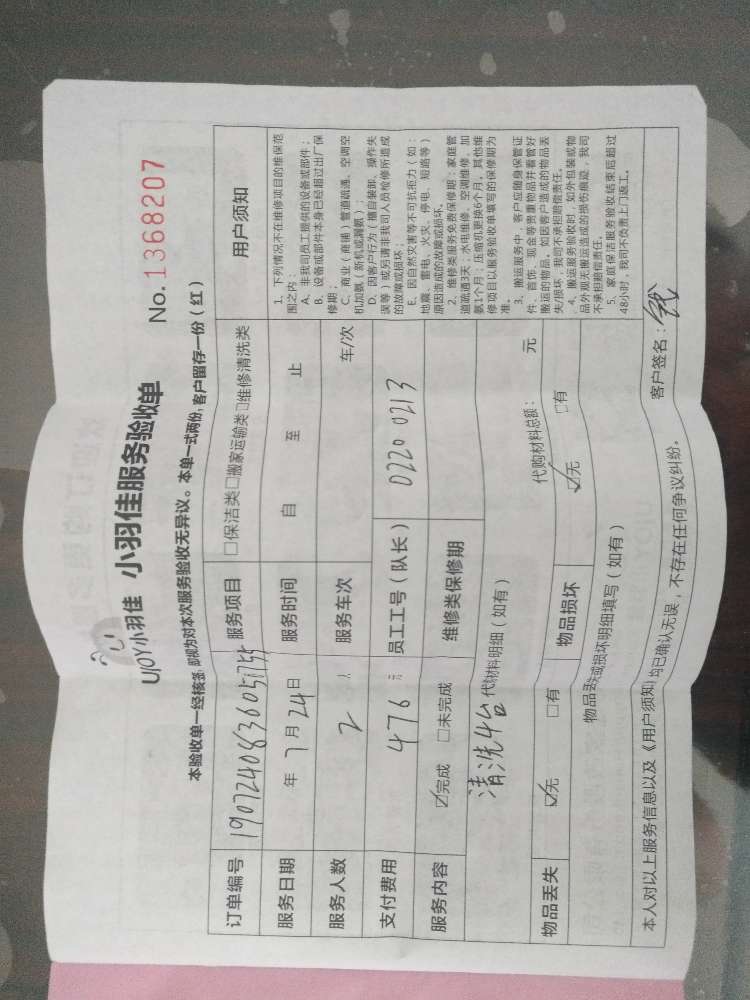 UJOY小羽佳 小羽佳服务验收单 No.1368207
本验收单一经核签 即视为对本次服务验收无异议。本单一式两份,客户留存一份(红)
订单编号 服务项目 □保洁类□搬家运输类□维修清洗类
服务日期 年 7 月 24 日 服务时间 自 至 止
服务人数 2 人 服务车次 车/次
支付费用 476 元 员工工号(队长) 0220 0213
服务内容 ☑完成 □未完成 维修类保修期
清洗4台
代购材料总额: 元
物品丢失 ☑无 □有 物品损坏 ☑无 □有
物品丢失或损坏明细填写(如有)
本人对以上服务信息以及《用户须知》均已确认无误,不存在任何争议纠纷。 客户签名:
用户须知
1、下列情况不在维修项目的维保范
围之内:
A、非我司员工提供的设备或部件;
B、设备或部件本身已经超过出厂保
修期;
C、商业(商铺)管道疏通、空调空
机加氨(新机或漏氨);
D、因客户行为(擅自装卸、操作失
误等)或另请非我司人员检修所造成
的故障或损坏;
E、因自然灾害等不可抗拒力(如:
地震、雷电、火灾、停电、短路等)
原因造成的故障或损坏。
2、维修类服务免费保修期:家庭管
道疏通3天;水电维修、空调维修、加
氨1个月;压缩机更换6个月,其他维
修项目以服务验收单填写的保修期为
准。
3、搬运服务中,客户应随身保管证
件、首饰、现金等贵重物品并看管好
搬运的物品。如因客户造成的物品丢
失/损坏,我司不承担赔偿责任。
4、搬运服务验收时,如外包装或物
品外观无搬运造成的损伤痕迹,我司
不承担赔偿责任。
5、家庭保洁服务验收结束后超过
48小时,我司不负责上门返工。